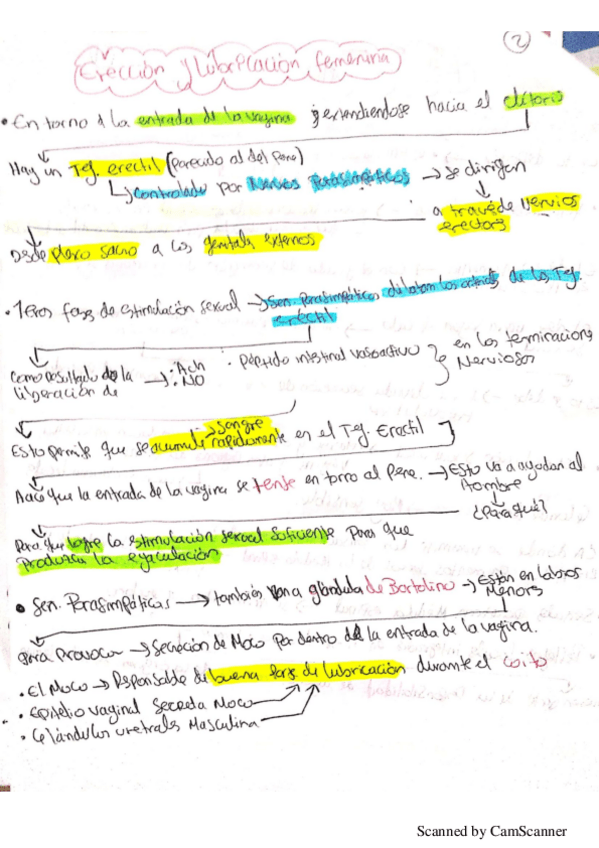 2
Erección y lubricación femenina
• En torno a la entrada de la vagina y extendiendose hacia el clítoris
Hay un Tej. erectil (parecido al del pene)
↳ controlado por Nervios Parasimpáticos → se dirigen
a través de Nervios erectors
Desde plexo sacro a los genitals externos
• 1eras fases de estimulación sexual → Señ. Parasimpáticas dilatan las arterias de los Tej. erectil
Como resultado de la liberación de → • Ach • NO • Péptido intestinal vasoactivo } en las terminaciones Nerviosas
Esto permite que se acumule → sangre rapidamente en el Tej. Erectil
Hace que la entrada de la vagina se tense en torno al pene. → Esto va a ayudar al Hombre
¿Para qué?
Para que logre la estimulación sexual suficiente para que
produzca la eyaculación
• Señ. Parasimpáticas → también van a glándula de Bartolino → Están en labios Menors
para provocar → Secreción de Moco por dentro de la entrada de la vagina.
• El Moco → Responsable de buena parte de lubricación durante el coito
• Epitelio vaginal Secreda Moco
• Glándulas uretrales Masculina
Scanned by CamScanner